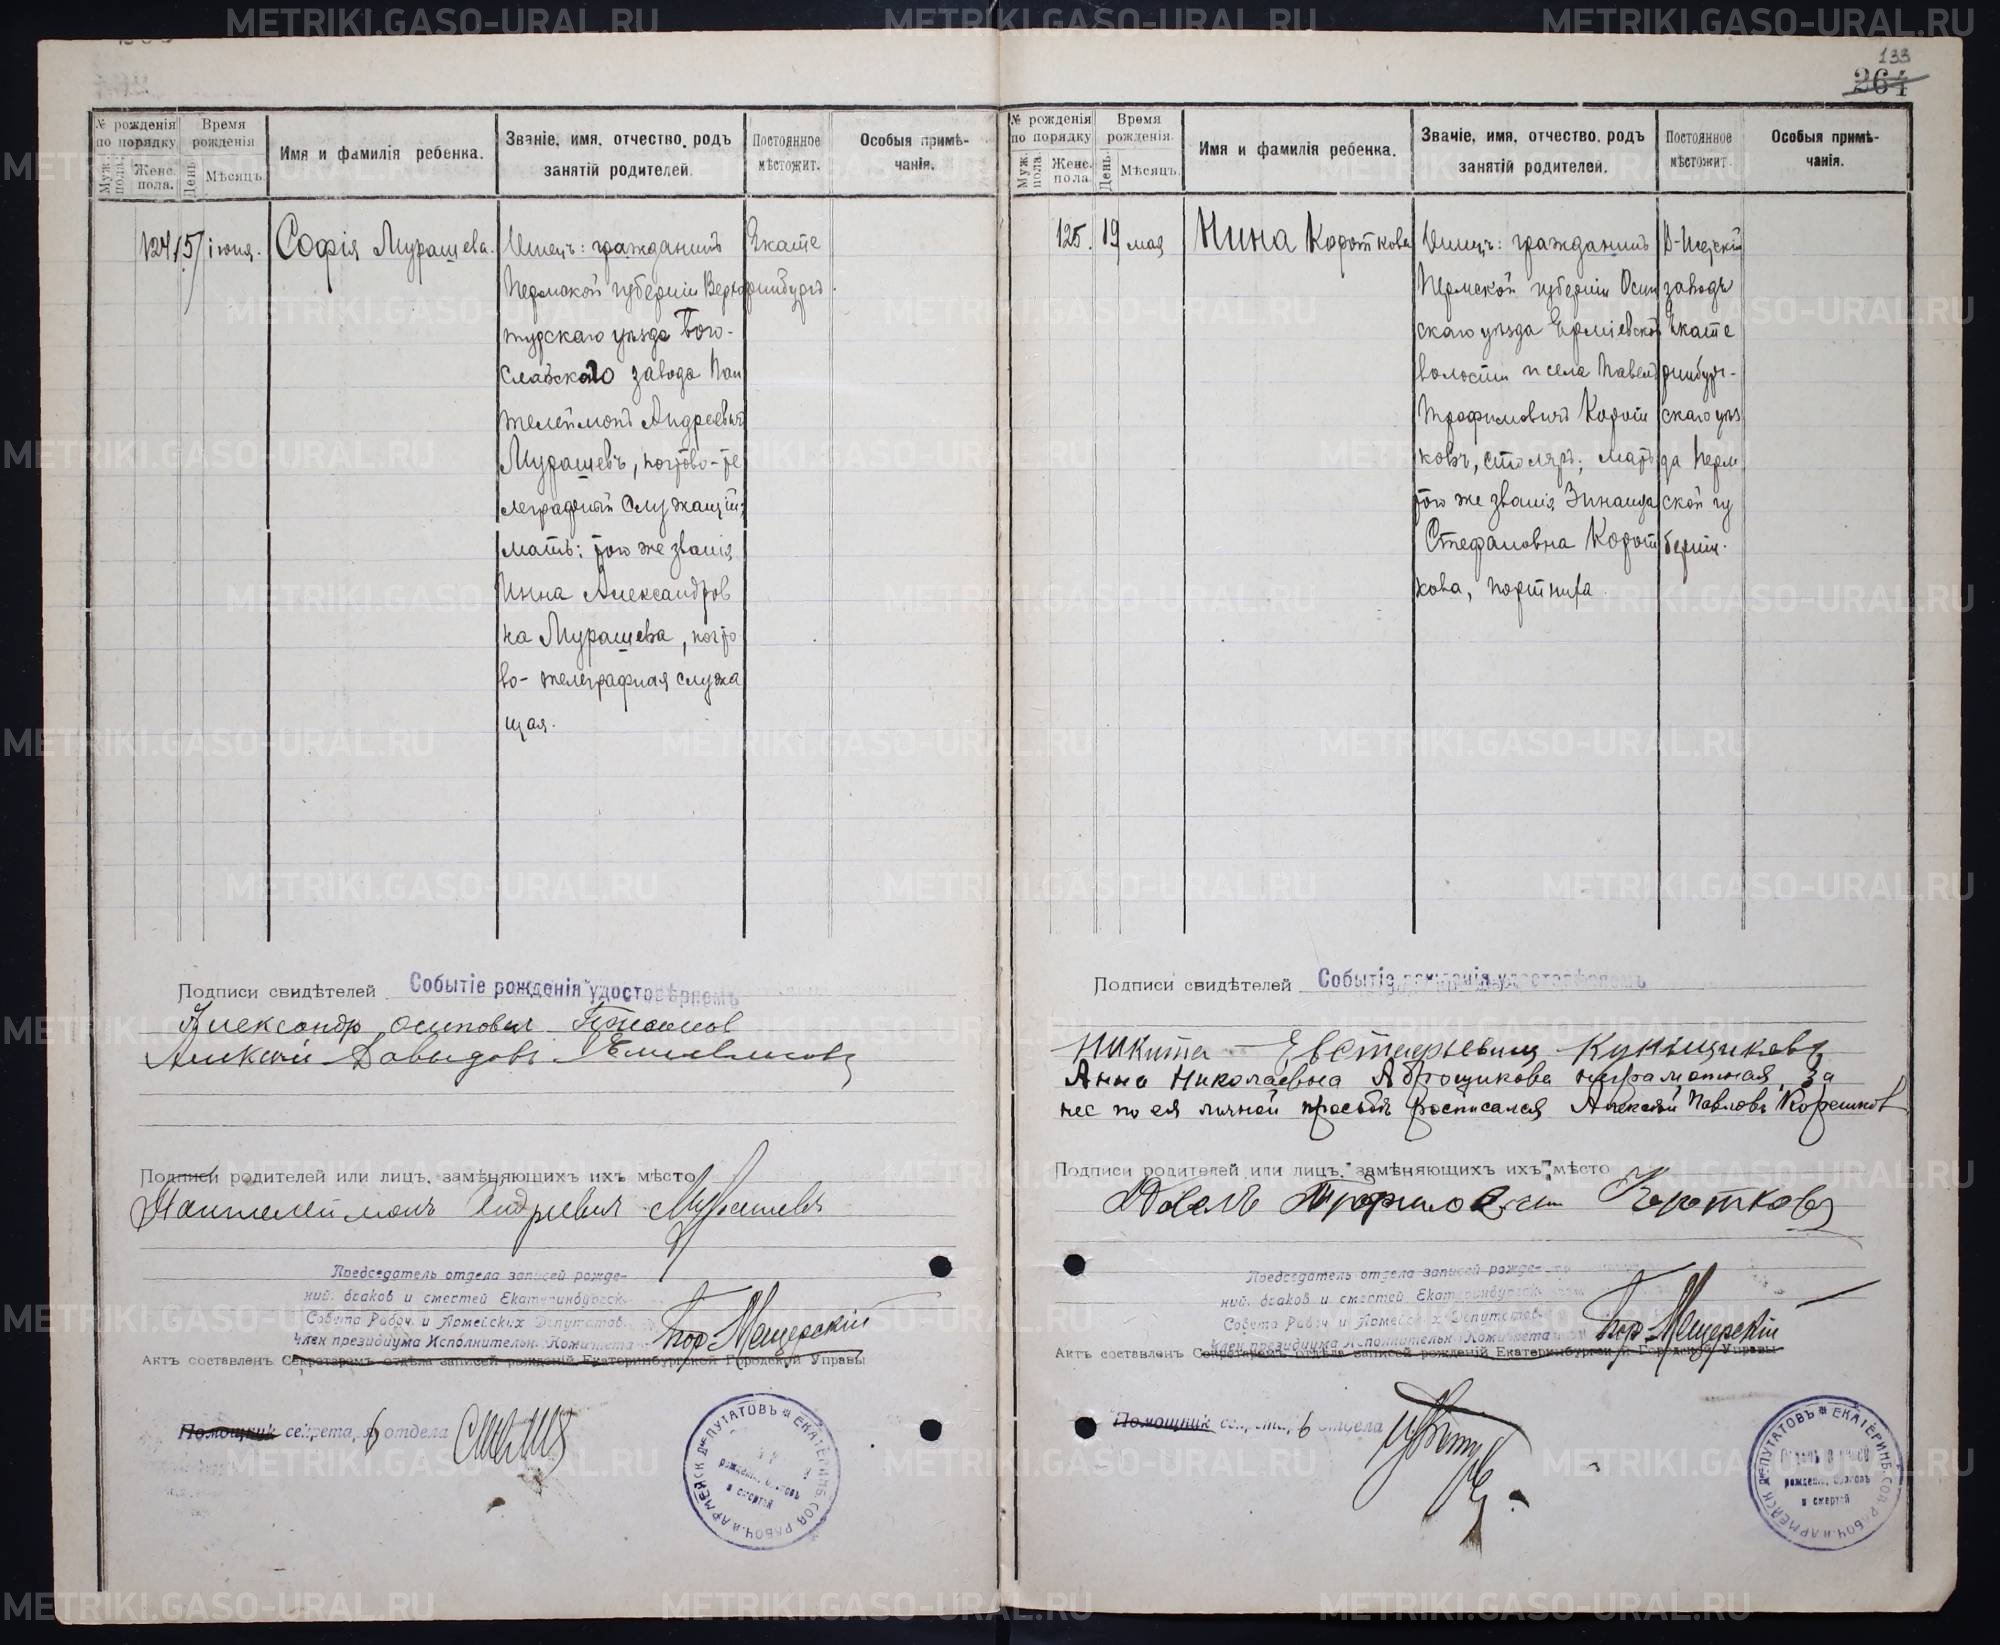 133
264
№ рожденія по порядку
Муж. пола.
Женс. пола.
Время рожденія
День
Мѣсяцъ.
Имя и фамилія ребенка.
Званіе, имя, отчество, родъ занятій родителей.
Постоянное мѣстожит.
Особыя примѣчанія.
124
5
іюня.
Софія Мурашева.
Отецъ: гражданинъ
Пермской губерніи Верхо
турскаго уѣзда Бого-
словскаго завода Пан
телеймонъ Андреевичъ
Мурашевъ, почтово-те
леграфный служащій;
мать: того же званія
Инна Александров
на Мурашева, почто
во-телеграфная служа
щая.
Екате
ринбургъ.
Подписи свидѣтелей
Событіе рожденія удостовѣряемъ
Александр Осипович
Алексѣй Давыдовъ
Подписи родителей или лицъ, замѣняющихъ ихъ мѣсто
Пантелеймонъ Андреевич Мурашевъ
Председатель отдела записей рожде-
ний, браков и смертей Екатеринбургск.
Совета Рабоч. и Армейских Депутатов.
Член президиума Исполнительн. Комитета
Мещерскій
Актъ составленъ Секретаремъ отдѣла записей рожденій Екатеринбургской Городской Управы
Помощник секрета, я отдела
ДЕПУТАТОВЪ * ЕКАТЕРИНБ. СОВ. РАБОЧ. И АРМЕЙСК
рожденій, браковъ
и смертей
№ рожденія по порядку
Муж. пола.
Женс. пола
Время рожденія.
День.
Мѣсяцъ.
Имя и фамилія ребенка.
Званіе, имя, отчество, родъ занятій родителей.
Постоянное мѣстожит.
Особыя примѣчанія.
125.
19
мая
Нина Короткова
Отецъ: гражданинъ
Пермской губерніи Осин
скаго уѣзда Ершевской
волости и села Павелъ
Трофимовичъ Корот
ковъ, столяръ; мать
того же званія Зинаида
Стефановна Корот
кова, портниха.
В-Исетскій
заводъ
Екате
ринбург-
скаго уѣз
да Перм
ской гу
берніи.
Подписи свидѣтелей
Событіе рожденія удостовѣряемъ
Никита Евстафьевич Кунщиковъ
Анна Николаевна Аброщикова неграмотная, за
нее по ея личной просьбѣ росписался Алексѣй Павловъ
Подписи родителей или лицъ, замѣняющихъ ихъ мѣсто
Павелъ Трофимович Коротковъ
Председатель отдела записей рожде-
ний, браков и смертей Екатеринбургск.
Совета Рабоч. и Армейских Депутатов.
Член президиума Исполнительн. Комитета
Мещерскій
Актъ составленъ Секретаремъ отдѣла записей рожденій Екатеринбургской Городской Управы
Помощник отдела
ДЕПУТАТОВЪ * ЕКАТЕРИНБ. СОВ. РАБОЧ. И АРМЕЙСК
рожденій, браковъ
и смертей
METRIKI.GASO-URAL.RU